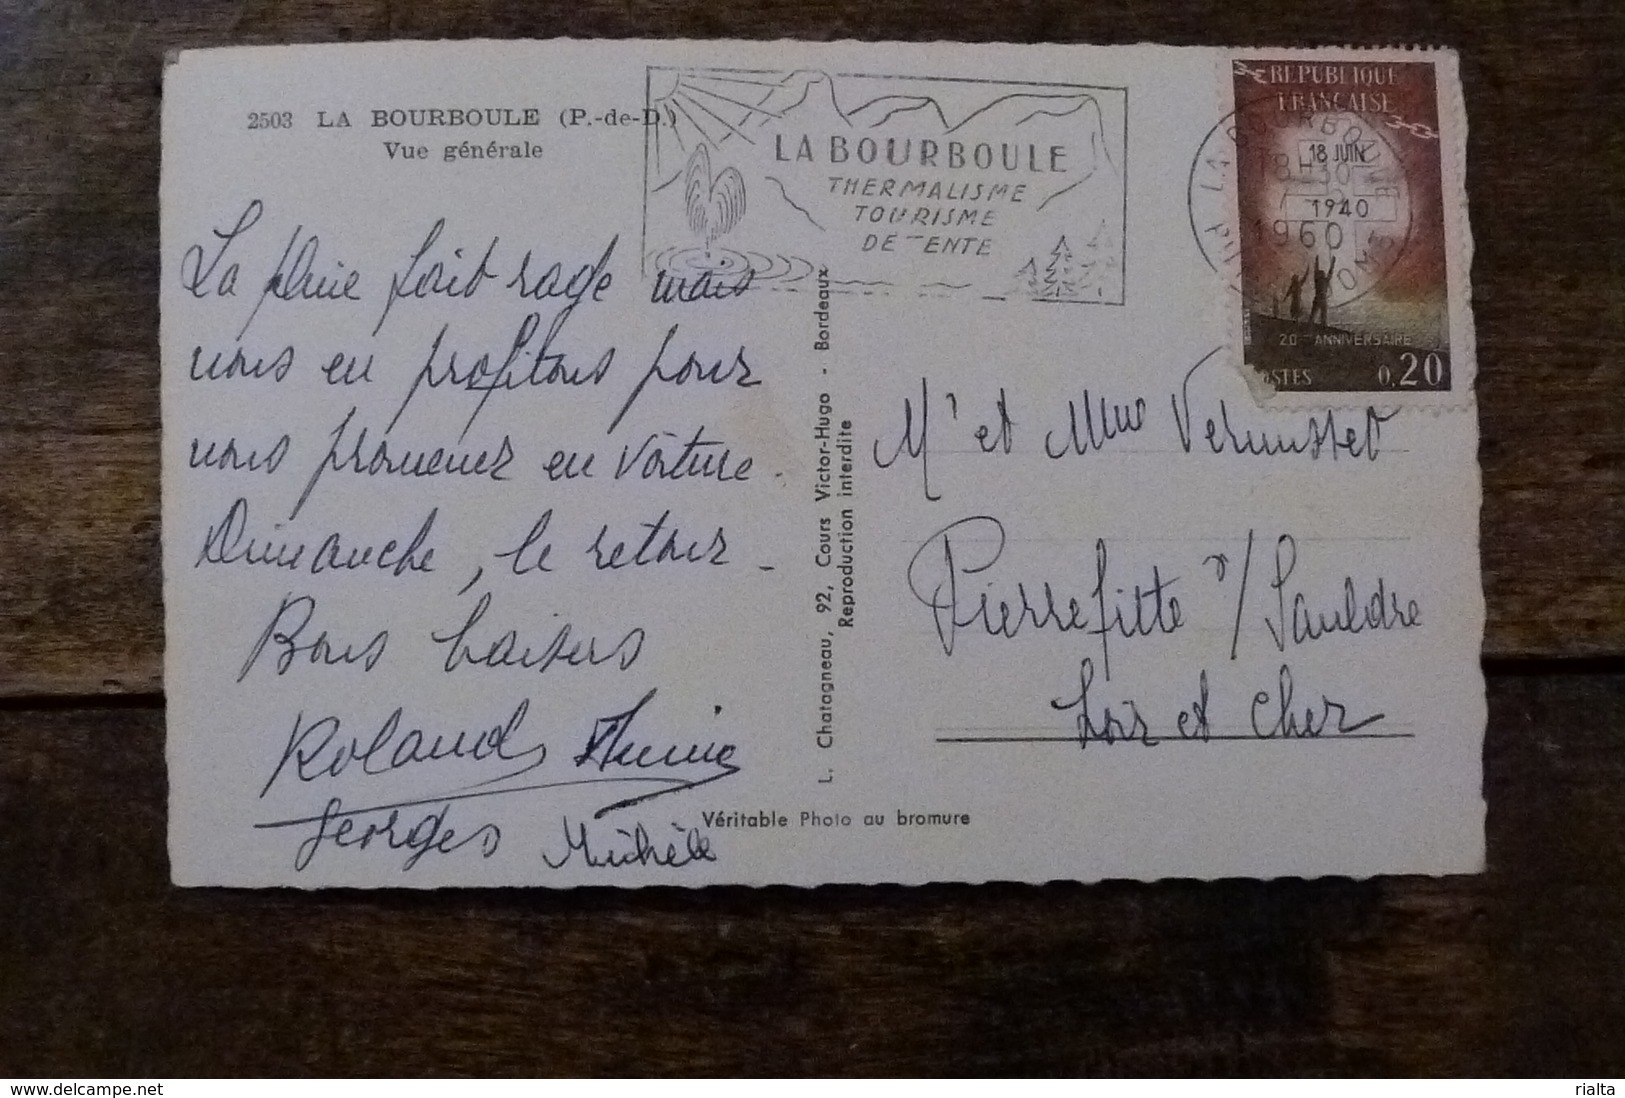 2503 LA BOURBOULE (P.-de-D.)
Vue générale
La pluie fait rage mais
nous en profitons pour
nous promener en voiture.
Dimanche, le retour -
Bons baisers
Roland Annie
Georges Michèle
LA BOURBOULE
THERMALISME
TOURISME
DETENTE
REPUBLIQUE
FRANÇAISE
18 JUIN
1940
20e ANNIVERSAIRE
POSTES 0,20
LA BOURBOULE
18H30
1960
PUY DE DOME
L. Chatagneau, 92, Cours Victor-Hugo - Bordeaux
Reproduction interdite
Mr et Mme
Pierrefitte s/ Sauldre
Loir et Cher
Véritable Photo au bromure
https://www.delcampe.net
rialta